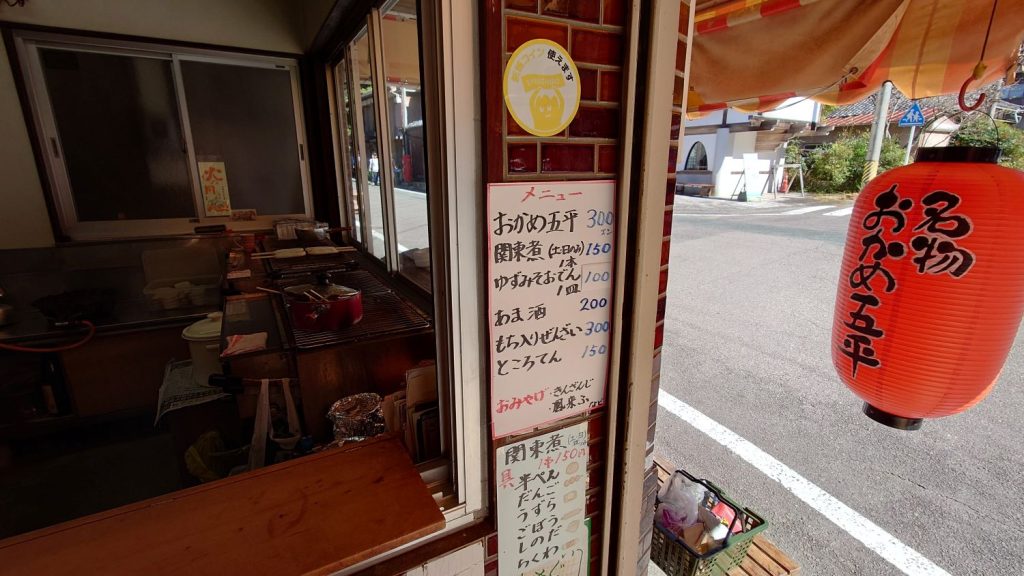 コイン使えます
メニュー
おかめ五平 300
関東煮(土日のみ) 150
1本
ゆずみそおでん 100
1皿
あま酒 200
もち入りぜんざい 300
ところてん 150
おみやげ・きんざんじ
・鳳来ふ
など
関東煮
1本150円
具
半ぺん
だんご
うずら
ごぼう
しのだ
ちくわ
名物
おかめ五平